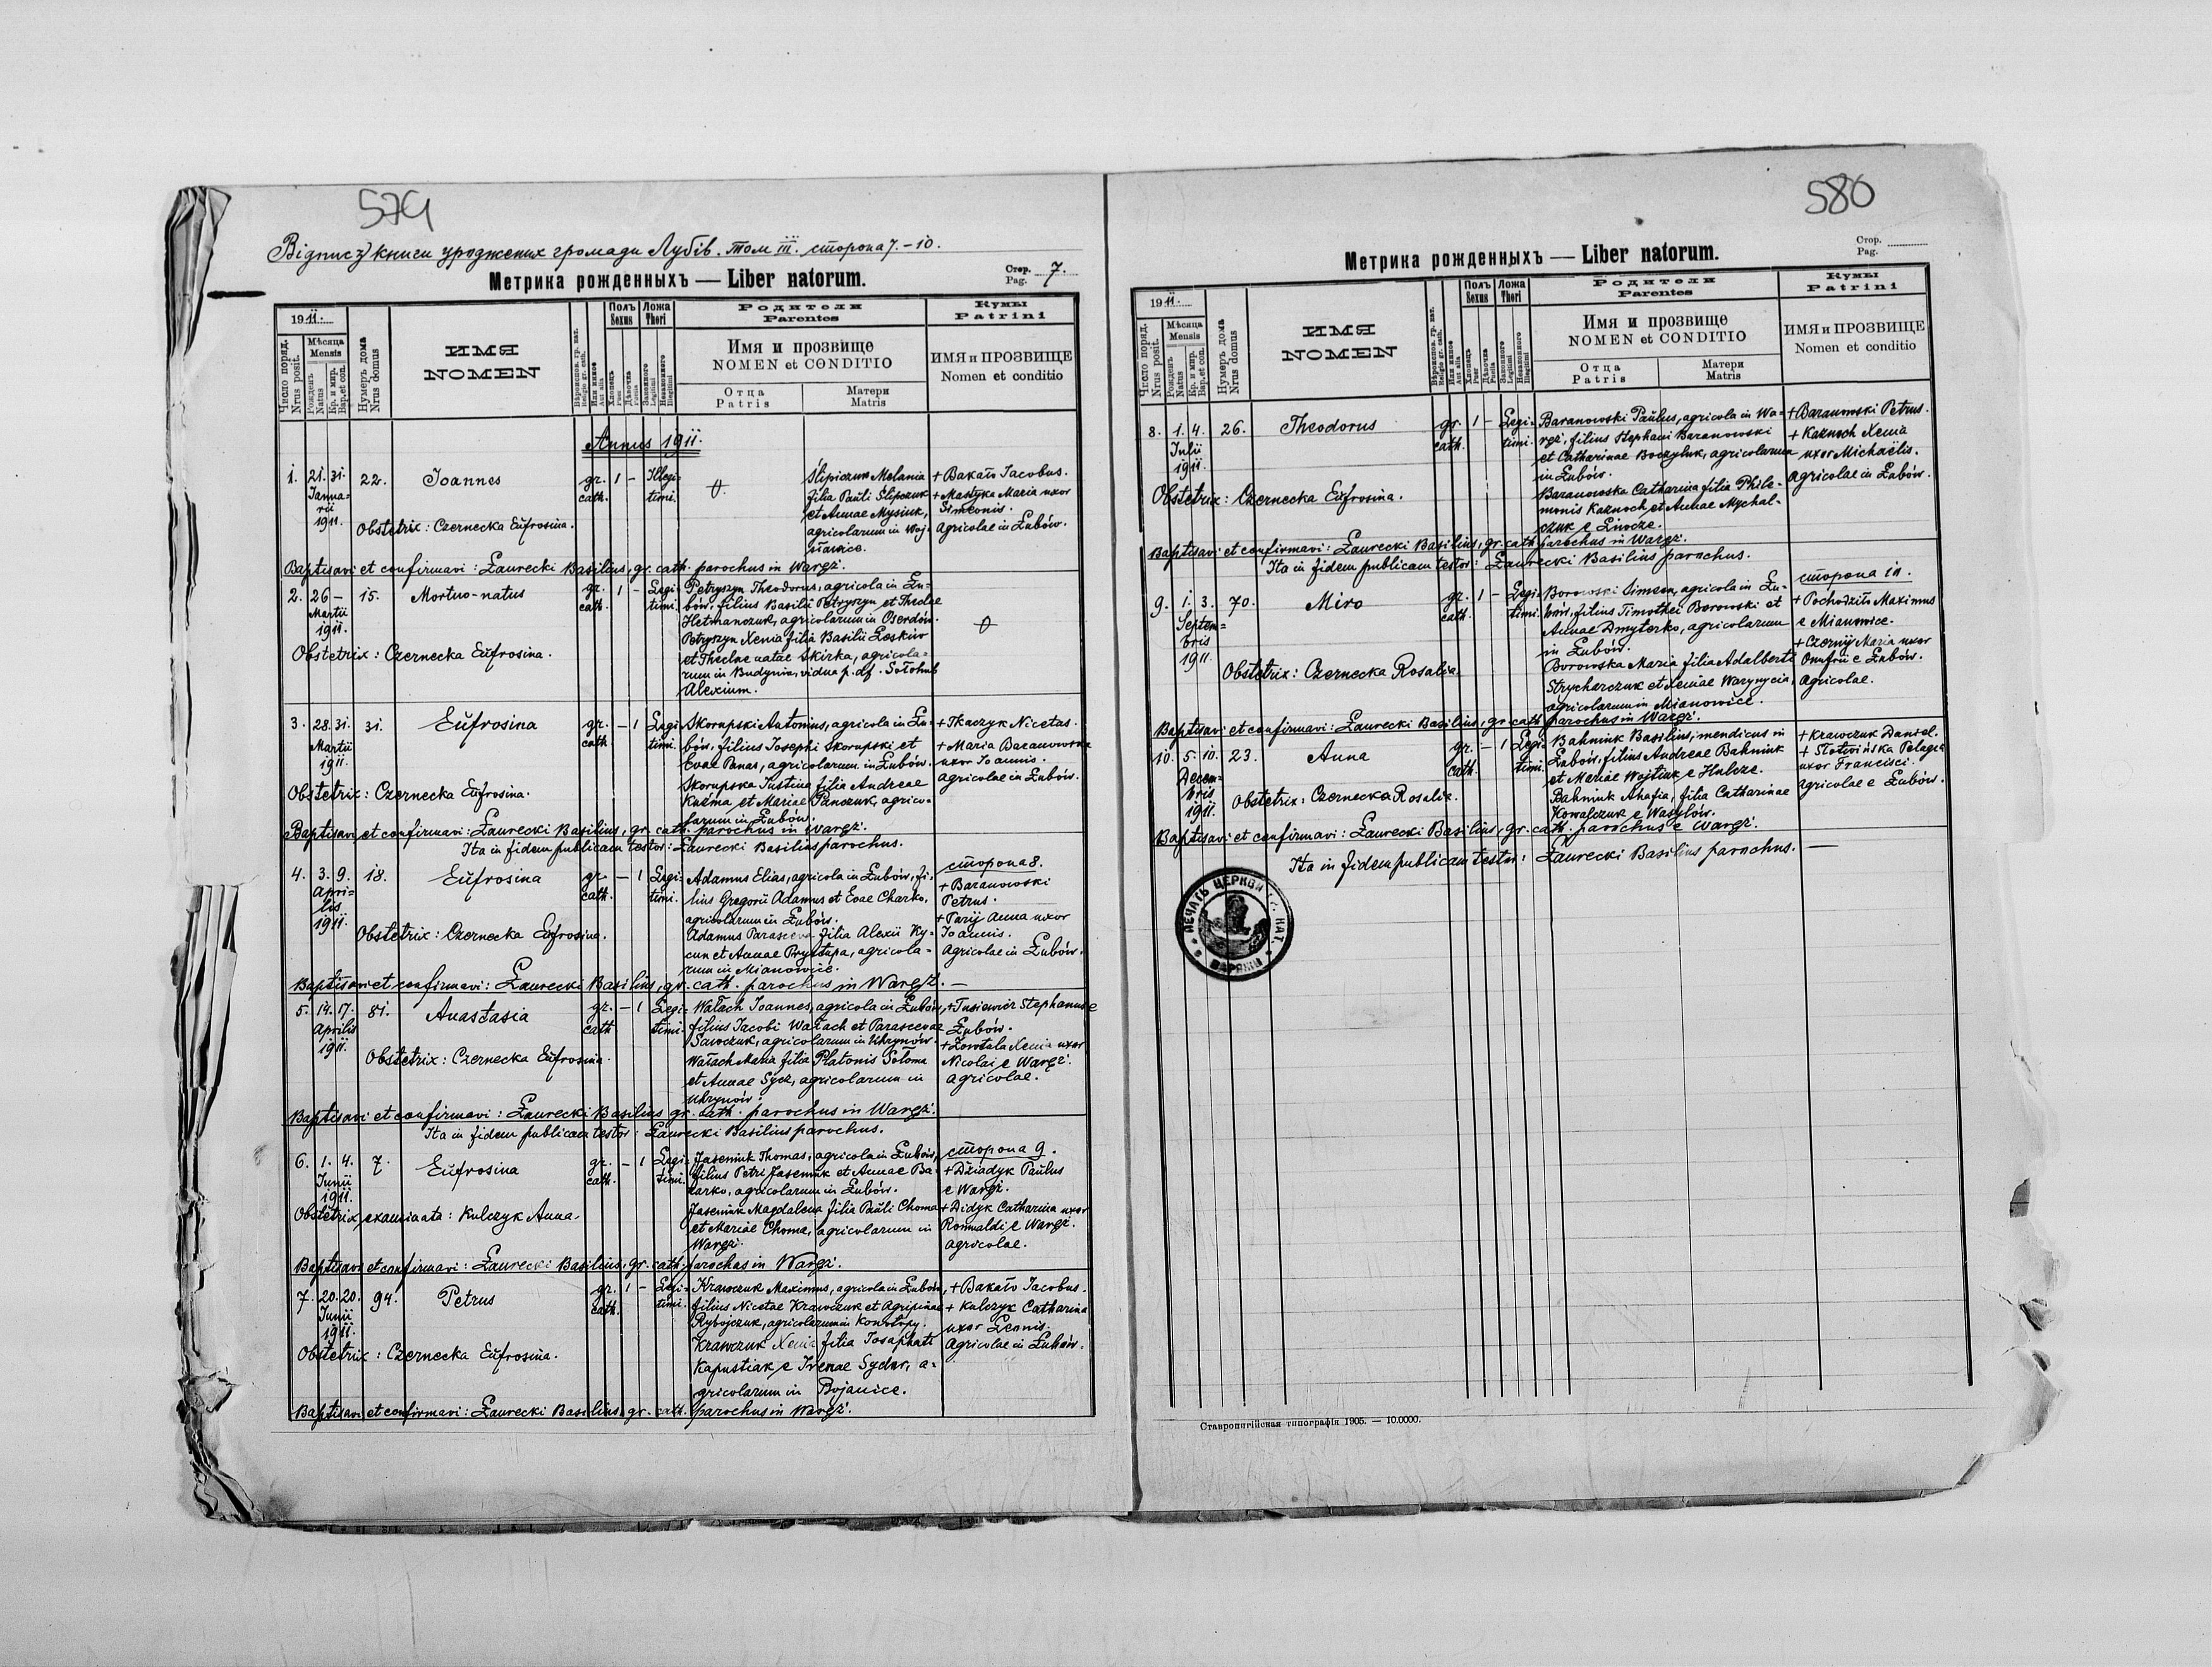 579
Відпис з книги уроджених громади Лубів. том III. сторона 7.-10.
Метрика рожденныхъ — Liber natorum.
Стор. Pag. 7.
1911.
Число поряд. Nrus posit.
Мѣсяца Mensis
Рожденъ Natus
Кр. и мир. Bap. et con.
Нумеръ дома Nrus domus
ИМЯ
NOMEN
Religio gr. cath.
Или инное Aut alia
Полъ Sexus
Хлопець Puer
Дѣвочка Puella
Ложа Thori
Законного Legitimi
Незаконного Illegitimi
Родители
Parentes
Имя и прозвище
NOMEN et CONDITIO
Отца Patris
Матери Matris
Кумы
Patrini
ИМЯ и ПРОЗВИЩЕ
Nomen et conditio
Annus 1911.
1. 21. 31. Januarii 1911. 22. Joannes gr. cath. 1 - Illegitimi.
Ślipiczuk Melania
filia Pauli Ślipczuk
et Annae Mysiuk,
agricolarum in Woj-
sławice.
+ Bakało Jacobus.
+ Mastyka Maria uxor
Simeonis.
Agricolae in Łubów.
Obstetrix: Czernecka Eufrosina.
Baptisavi et confirmavi: Ławrecki Basilius, gr. cath. parochus in Waręż.
2. 26 - Martii 1911. 15. Mortuo-natus gr. cath. 1 - Legitimi.
Petryszyn Theodorus, agricola in Łu-
bów, filius Basilii Petryszyn et Theclae
Hetmanczuk, agricolarum in Oserdów.
Petryszyn Xenia filia Basilii Leskiw
et Theclae natae Skirka, agricola-
rum in Budynin, vidua p. df. Sołohub
Alexium.
Obstetrix: Czernecka Eufrosina.
3. 28. 31. Martii 1911. 31. Eufrosina gr. cath. - 1 Legitimi.
Skorupski Antonius, agricola in Łu-
bów, filius Josephi Skorupski et
Evae Panas, agricolarum in Łubów.
Skorupska Justina filia Andreae
Kuźma et Mariae Panczuk, agrico-
larum in Łubów.
+ Tkaczyk Nicetas.
+ Maria Baranowska
uxor Joannis.
Agricolae in Łubów.
Obstetrix: Czernecka Eufrosina.
Baptisavi et confirmavi: Ławrecki Basilius, gr. cath. parochus in Waręż.
Ita in fidem publicam testor: Ławrecki Basilius parochus.
сторона 8.
4. 3. 9. Aprilis 1911. 18. Eufrosina gr. cath. - 1 Legitimi.
Adamus Elias, agricola in Łubów, fi-
lius Gregorii Adamus et Evae Charko,
agricolarum in Łubów.
Adamus Parasceva filia Alexii Ky-
cun et Annae Prystupa, agricola-
rum in Mianowice.
+ Baranowski
Petrus.
+ Parij Anna uxor
Joannis.
Agricolae in Łubów.
Obstetrix: Czernecka Eufrosina.
Baptisavi et confirmavi: Ławrecki Basilius, gr. cath. parochus in Waręż. —
5. 14. 17. Aprilis 1911. 81. Anastasia gr. cath. - 1 Legitimi.
Wałach Joannes, agricola in Łubów,
filius Jacobi Wałach et Parascevae
Sawczuk, agricolarum in Uhrynów.
Wałach Maria filia Platonis Sołoma
et Annae Sycz, agricolarum in
Uhrynów.
+ Tusiewicz Stephanus e
Łubów.
+ Zowtala Xenia uxor
Nicolai e Waręż.
Agricolae.
Obstetrix: Czernecka Eufrosina.
Baptisavi et confirmavi: Ławrecki Basilius gr. cath. parochus in Waręż.
Ita in fidem publicam testor: Ławrecki Basilius parochus.
сторона 9.
6. 1. 4. Junii 1911. 7. Eufrosina gr. cath. - 1 Legitimi.
Jaseniuk Thomas, agricola in Łubów,
filius Petri Jaseniuk et Annae Ba-
zarko, agricolarum in Łubów.
Jaseniuk Magdalena filia Pauli Choma
et Mariae Choma, agricolarum in
Waręż.
+ Dziadyk Paulus
e Waręż.
+ Didyk Catharina uxor
Romualdi e Waręż.
Agricolae.
Obstetrix examinata: Kulczyk Anna.
Baptisavi et confirmavi: Ławrecki Basilius, gr. cath. parochus in Waręż.
7. 20. 20. Junii 1911. 94. Petrus gr. cath. 1 - Legitimi.
Krawczuk Maximus, agricola in Łubów,
filius Nicetae Krawczuk et Agripinae
Rybojczuk, agricolarum in Konotopy.
Krawczuk Xenia filia Josaphati
Kapustiak e Irenae Sydor, a-
gricolarum in Bojanice.
+ Bakało Jacobus.
+ Kulczyk Catharina
uxor Leonis.
Agricolae in Łubów.
Obstetrix: Czernecka Eufrosina.
Baptisavi et confirmavi: Ławrecki Basilius, gr. cath. parochus in Waręż.
580
Метрика рожденныхъ — Liber natorum.
Стор. Pag.
1911.
Число поряд. Nrus posit.
Мѣсяца Mensis
Рожденъ Natus
Кр. и мир. Bap. et con.
Нумеръ дома Nrus domus
ИМЯ
NOMEN
Religio gr. cath.
Или инное Aut alia
Полъ Sexus
Хлопець Puer
Дѣвочка Puella
Ложа Thori
Законного Legitimi
Незаконного Illegitimi
Родители
Parentes
Имя и прозвище
NOMEN et CONDITIO
Отца Patris
Матери Matris
Кумы
Patrini
ИМЯ и ПРОЗВИЩЕ
Nomen et conditio
8. 1. 4. Julii 1911. 26. Theodorus gr. cath. 1 - Legitimi.
Baranowski Paulus, agricola in Wa-
ręż, filius Stephani Baranowski
et Catharinae Boczyluk, agricolarum
in Łubów.
Baranowska Catharina filia Phile-
monis Kaznoch et Annae Mychal-
czuk e Liwcze.
+ Baranowski Petrus.
+ Kaznoch Xenia
uxor Michaëlis.
Agricolae in Łubów.
Obstetrix: Czernecka Eufrosina.
Baptisavi et confirmavi: Ławrecki Basilius, gr. cath. parochus in Waręż.
Ita in fidem publicam testor: Ławrecki Basilius parochus.
сторона 10.
9. 1. 3. Septembris 1911. 70. Miro gr. cath. 1 - Legitimi.
Borowski Simeon, agricola in Łu-
bów, filius Timothei Borowski et
Annae Dmyterko, agricolarum
in Łubów.
Borowska Maria filia Adalberti
Strycharczuk et Xeniae Warynycia,
agricolarum in Mianowice.
+ Pochodziło Maximus
e Mianowice.
+ Czernij Maria uxor
Onufrii e Łubów.
Agricolae.
Obstetrix: Czernecka Rosalia.
Baptisavi et confirmavi: Ławrecki Basilius, gr. cath. parochus in Waręż.
10. 5. 10. Decembris 1911. 23. Anna gr. cath. - 1 Legitimi.
Bahniuk Basilius, mendicus in
Łubów, filius Andreae Bahniuk
et Mariae Wojtiuk e Hulcze.
Bahniuk Ahafia, filia Catharinae
Kowalczuk e Wasylów.
+ Krawczuk Daniel.
+ Słotwińska Pelagia
uxor Francisci.
Agricolae e Łubów.
Obstetrix: Czernecka Rosalia.
Baptisavi et confirmavi: Ławrecki Basilius, gr. cath. parochus e Waręż.
Ita in fidem publicam testor: Ławrecki Basilius parochus. —
ПЕЧАТЬ ЦЕРКОВ. Г. КАТ.
Ставропигійская типографія 1905. — 10.0000.